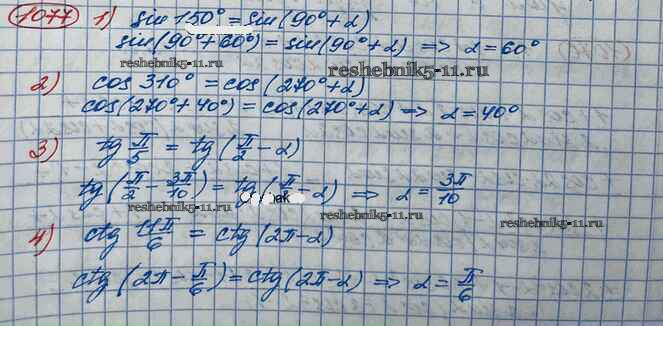 1077 1) sin 150° = sin(90° + α)
sin(90° + 60°) = sin(90° + α) => α = 60°
reshebnik5-11.ru
2) cos 310° = cos(270° + α)
reshebnik5-11.ru
cos(270° + 40°) = cos(270° + α) => α = 40°
3) tg π/5 = tg(π/2 - α)
tg(π/2 - 3π/10) = tg(π/2 - α) => α = 3π/10
reshebnik5-11.ru reshebnik5-11.ru reshebnik5-11.ru
4) ctg 11π/6 = ctg(2π - α)
ctg(2π - π/6) = ctg(2π - α) => α = π/6